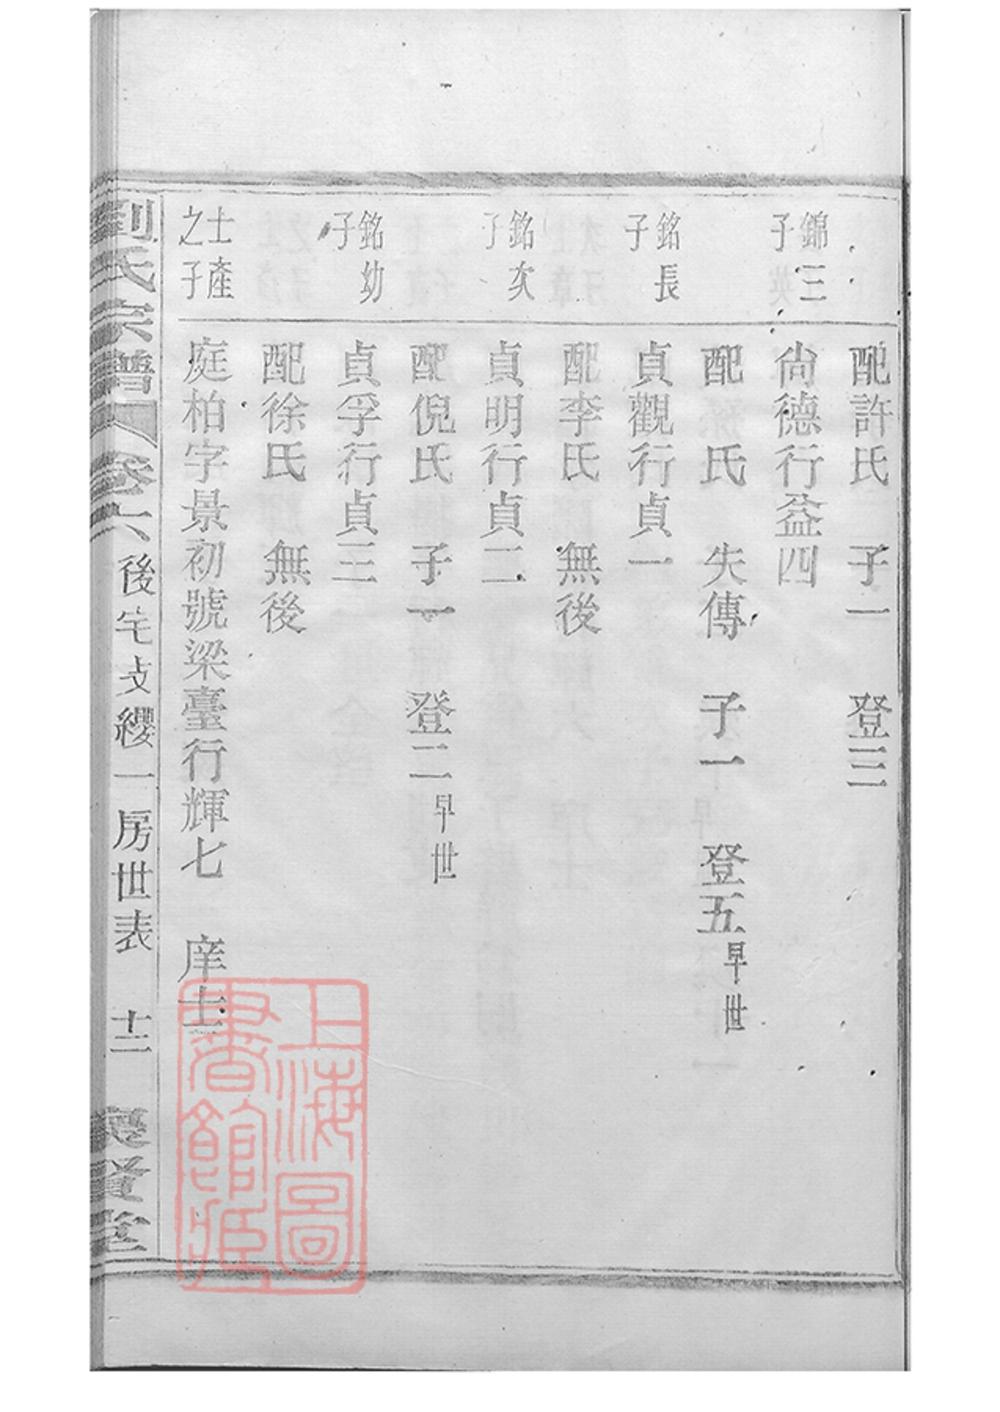 配許氏　子一　登三
錦三子
尙德行益四
配　氏　失傳　子一　登五早世
銘長子
貞觀行貞一
配李氏　無後
銘次子
貞明行貞二
配倪氏　子一　登二早世
銘幼子
貞孚行貞三
配徐氏　無後
士產之子
庭柏字景初號梁臺行輝七　庠士
劉氏宗譜　卷六　後宅攴纓一房世表　十二　賢堂
上海圖書館